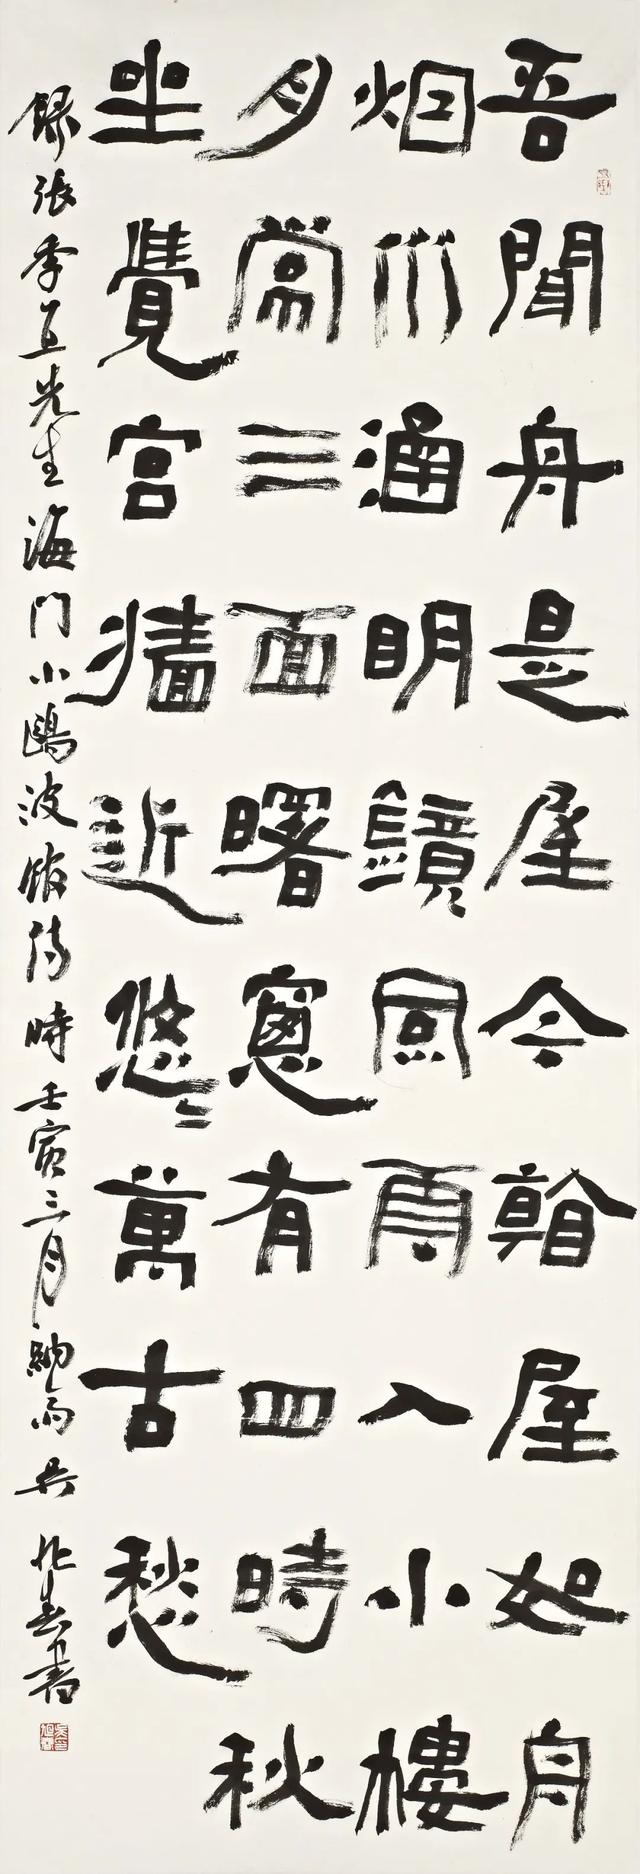 吾聞舟是屋今屋如舟
烟川涵明鏡風雨入小樓
月常三面曙窻有四時秋
坐覺宮牆近悠〻萬古愁
錄張季直先生海門小鷗波館詩時壬寅三月納雨吳旭春書